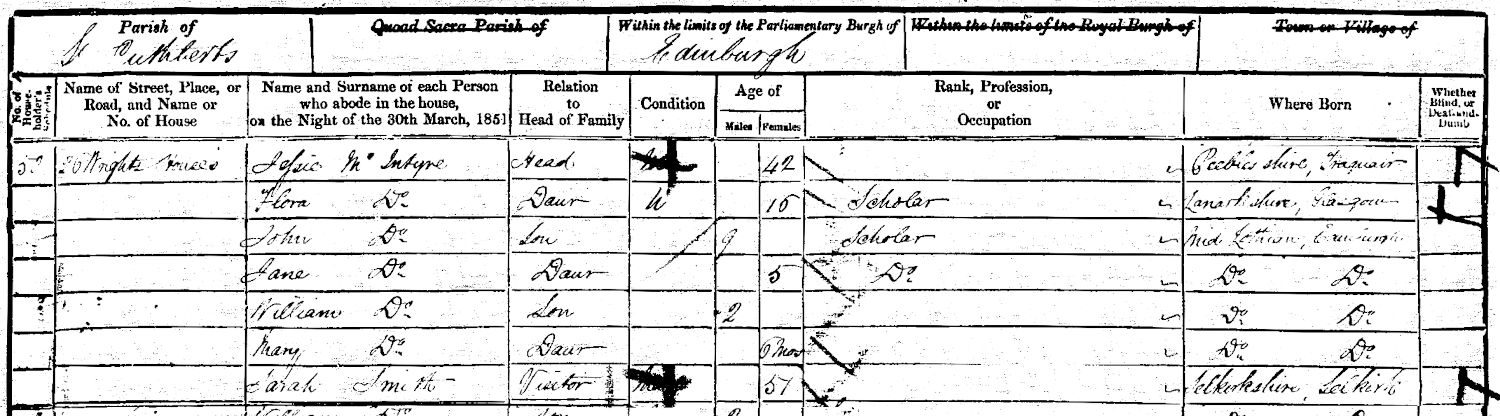 Parish of Quoad Sacra Parish of Within the limits of the Parliamentary Burgh of Within the limits of the Royal Burgh of Town or Village of
St Cuthberts Edinburgh
No. of Householder's Schedule Name of Street, Place, or Road, and Name or No. of House Name and Surname of each Person who abode in the house, on the Night of the 30th March, 1851 Relation to Head of Family Condition Age of Males Females Rank, Profession, or Occupation Where Born Whether Blind, or Deaf-and-Dumb
26 Wrights Houses Jessie Mc Intyre Head 42 Peebles shire, Traquair
Flora Do Daur U 15 Scholar Lanarkshire, Glasgow
John Do Son 9 Scholar Mid Lothian, Edinburgh
Jane Do Daur 5 Do Do Do
William Do Son 2 Do Do
Mary Do Daur 6 mos Do Do
Sarah Smith Visitor 51 Selkirkshire, Selkirk